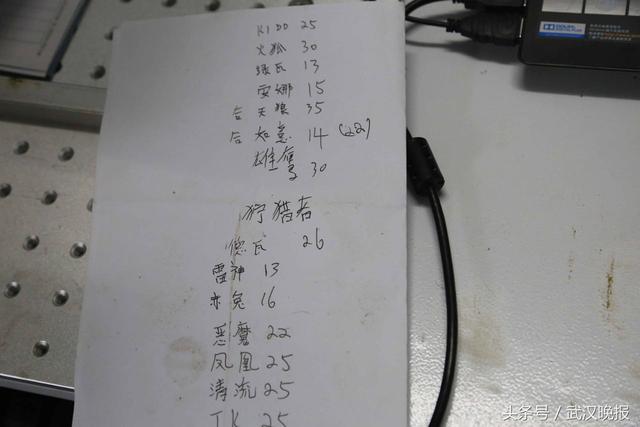 KIDD 25
火狐 30
绿瓦 13
安娜 15
天狼 35
后 如意 14 (22)
雄鹰 30
狩猎者
德瓦 26
雷神 13
赤兔 16
恶魔 22
凤凰 25
清流 25
TK 25
DOLBY
头条号／武汉晚报